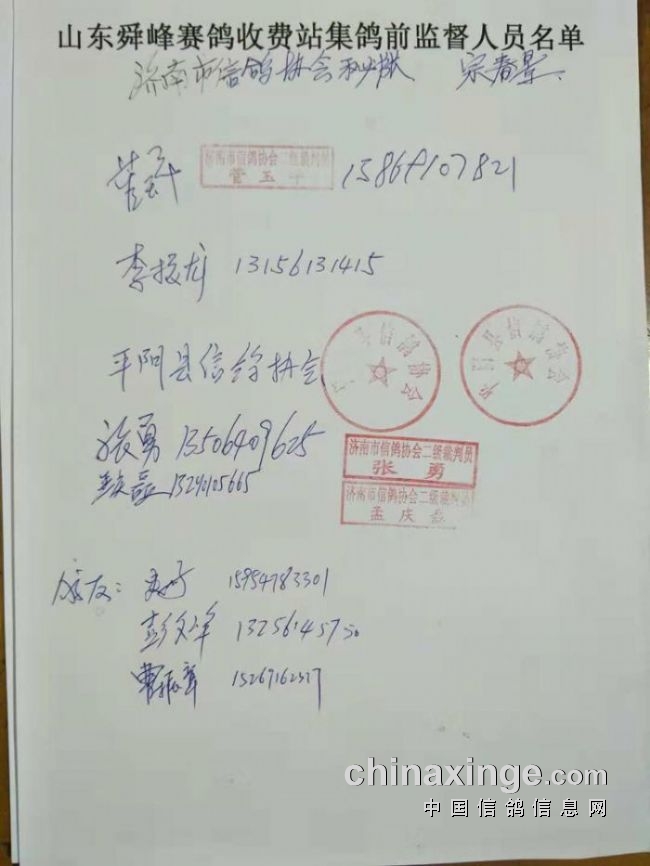 山东舜峰赛鸽收费站集鸽前监督人员名单
济南市信鸽协会 宗春景
济南市信鸽协会二级裁判员
管玉
15869107821
李投龙 13156131415
平阴县信鸽协会
县信鸽协会
平阴县信鸽协会
张勇 13506409625
济南市信鸽协会二级裁判员
张勇
孟庆磊 13290105665
济南市信鸽协会二级裁判员
孟庆磊
鸽友: 15954783301
彭文军
曹振章
chinaxinge.com
中国信鸽信息网